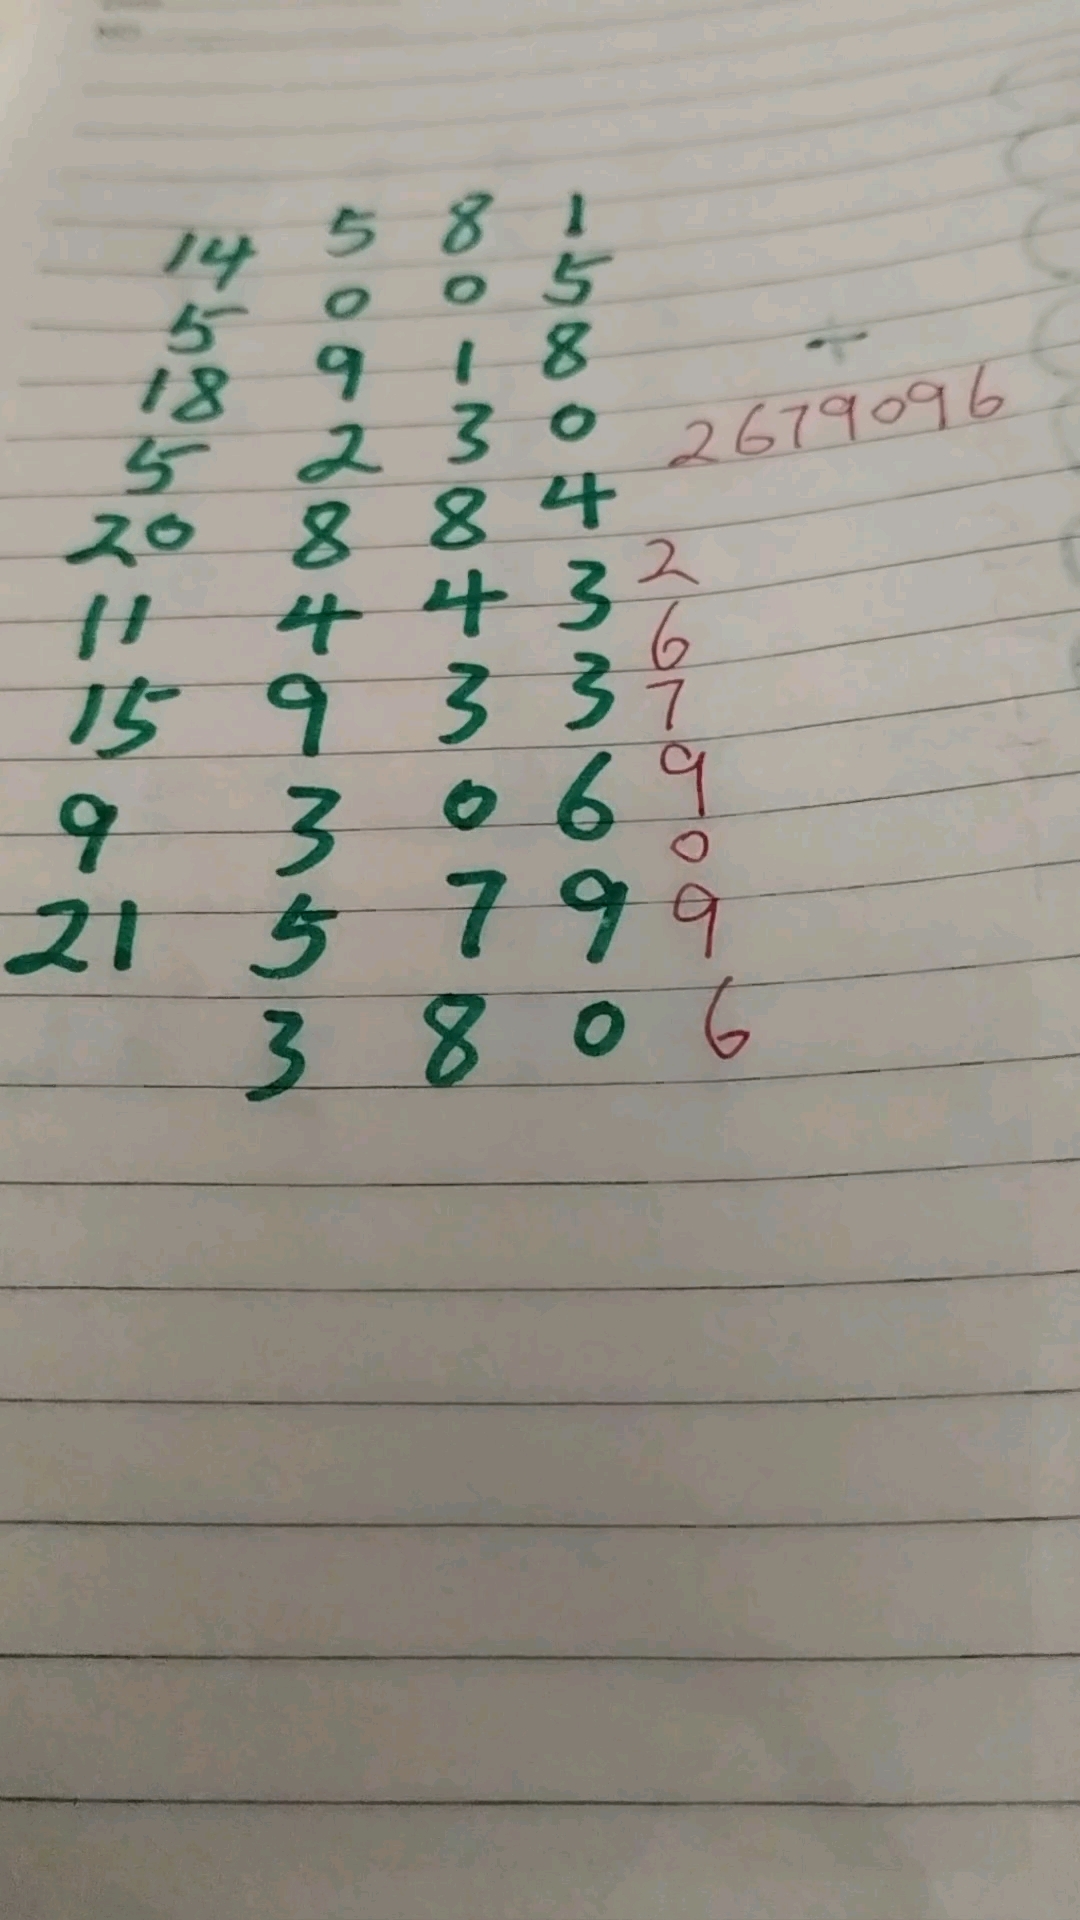 14 5 8 1
5 0 0 5
18 9 1 8
5 2 3 0
÷
2679096
20 8 8 4
11 4 4 3 2
15 9 3 3 6
7
9 3 0 6 9
0
21 5 7 9 9
3 8 0 6